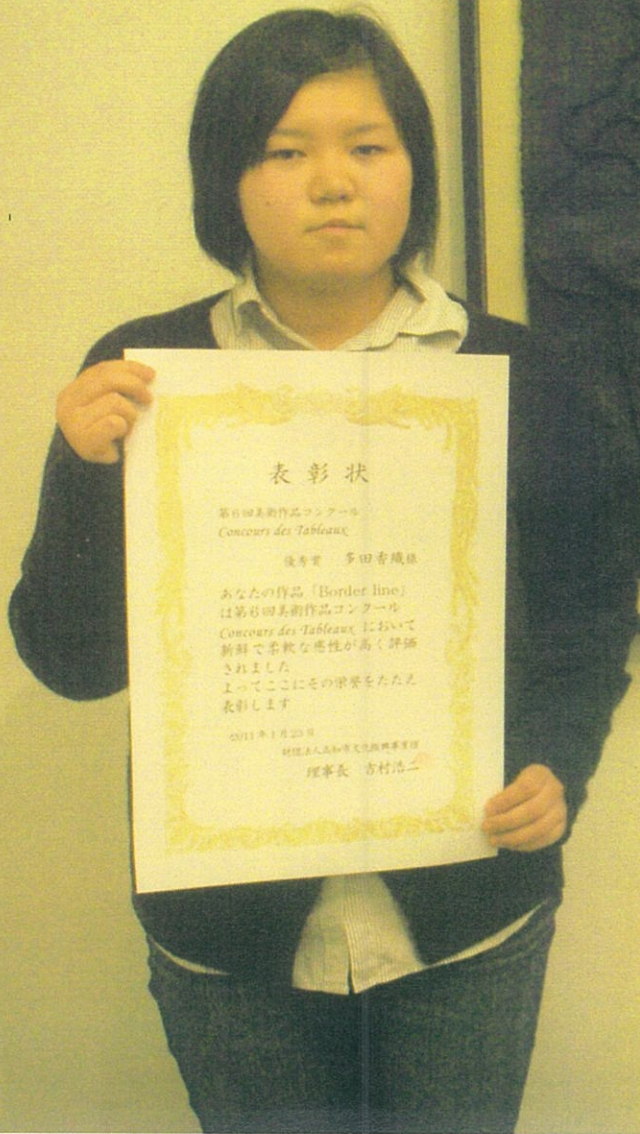 表彰状
第6回美術作品コンクール
Concours des Tableaux
優秀賞 多田香織様
あなたの作品「Border line」
は第6回美術作品コンクール
Concours des Tableaux において
新鮮で柔軟な感性が高く評価
されました
よってここにその栄誉をたたえ
表彰します
2011年1月23日
財団法人高知市文化振興事業団
理事長 吉村浩二